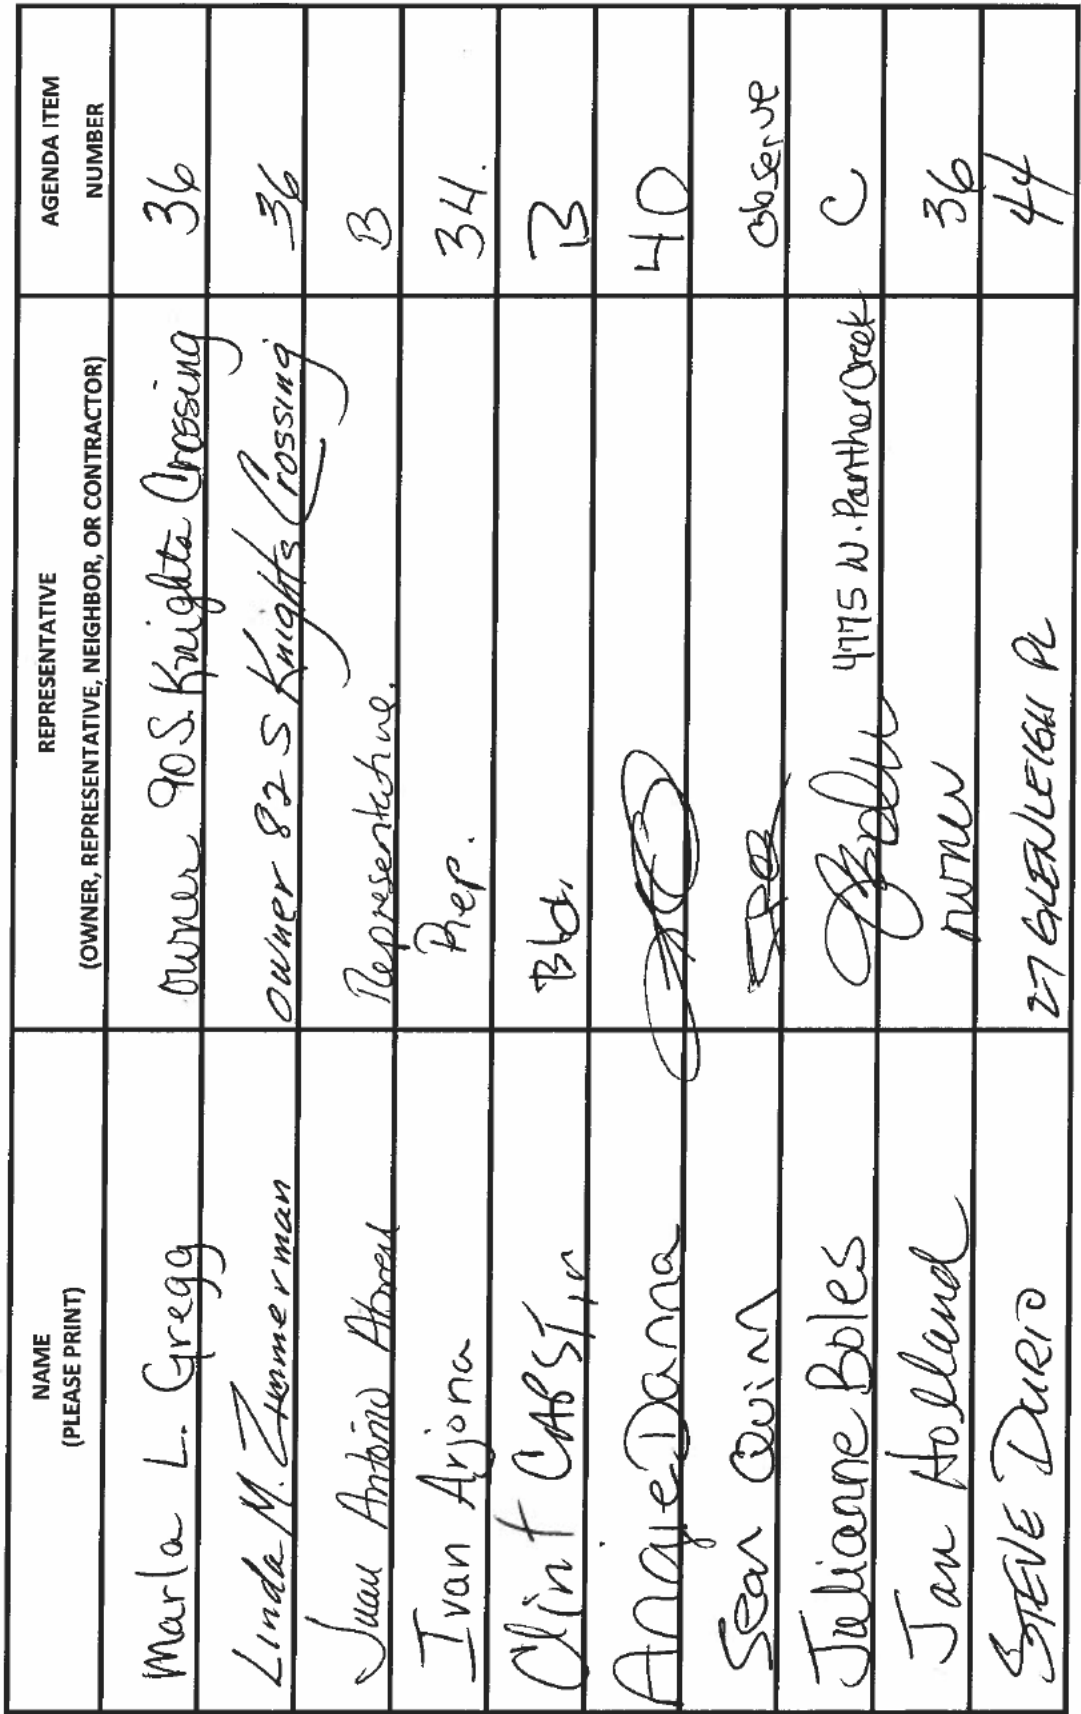 NAME
(PLEASE PRINT)
REPRESENTATIVE
(OWNER, REPRESENTATIVE, NEIGHBOR, OR CONTRACTOR)
AGENDA ITEM
NUMBER
Marla L. Gregg owner 90 S. Knights Crossing 36
Linda M. Zimmerman owner 82 S Knights Crossing 36
Juan Antonio Abreu Representative. B
Ivan Arjona Rep. 34.
Clint Bld. B
Angie Danna 40
Sean Quinn observe
Julianne Boles 4775 W. Panther Creek C
Jan Holland owner 36
STEVE DURIO 27 GLENLEIGH PL 44